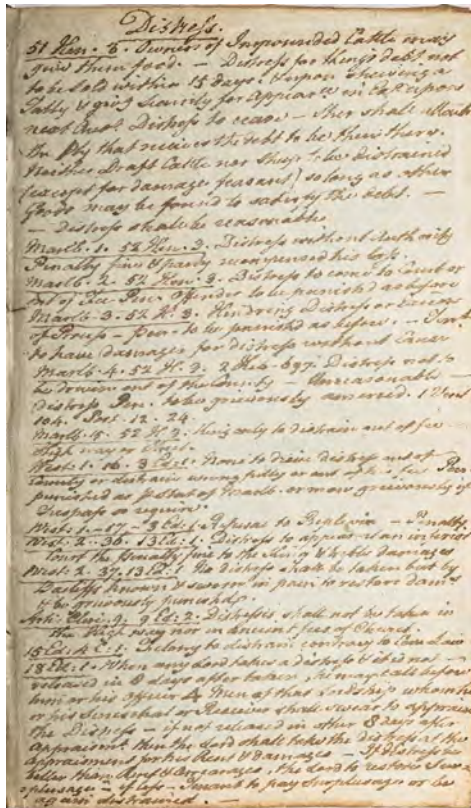 Distress.
51 Hen. 3. Owner of Impounded Cattle may
give them food. — Distress for King's debt not
to be sold within 15 days, & upon shewing a
Tally & giv.g Security for Appear.ce in Exch upon
next Distress to cease — Sher shall
the pty that receives the debt to be then there.
Neither Draft Cattle nor Sheep to be distrained
(except for damage feasant) so long as other
Goods may be found to satisfy the debt. —
— Distress shall be reasonable
Marlb. 1. 52 Hen. 3. Distress without Authority
Penalty fine & party recompensed his loss.
Marlb. 2. 52 Hen. 3. Distress to come to Court
out of Fee Pen. Offender to be punished as before
Marlb. 3. 52 H. 3. Hindring Distress or
of Process — Pen. to be punished as before. —
to have damages for distress without Cause
Marlb. 4. 52 H. 3. Distress not to
be driven out of the County — Unreasonable
distress Pen. to be grievously amerced. 1 Vent
104. Post. 12. 24.
Marlb. 15. 52 H. 3. King only to distrain out of fee
High way or Street.
West. 1. 16. 3 Ed: 1. None to drive distress out of
County or distrain wrongfully or out of his fee Pen
punished as p Stat of Marlb. or more grievously if
Trespass so require.
West. 1. — 17 — 3 Ed: 1. Refusal to Replevin — Penalty
West. 2. 36. 13 Ed: 1. Distress to appear at an inferior
Court the Penalty fine to the King & treble damages
West. 2. 37. 13 Ed: 1. No distress shall be taken but by
Bailiffs known & sworn in pain to restore dam.s
& be grievously punish'd.
Arti: Cleri: 9. 9 Ed: 2. Distresses shall not be taken in
the High way nor in Ancient fees of Church.
15 Ed: 4. C: 1. to distrain contrary to
18 Ed: 1. When any Lord takes a distress & it is not
released in 8 days after taken, he may call before
him or his officer 4 Men of that Lordship whom he
or his Seneschal or Receiver shall swear to appraise
the Distress — if not released in other 8 days after
Appraism.t then the Lord shall take the distress at the
appraisement for his Rent & damages — If Distress be
better than Rent & Arrearages, the Lord to restore
oplusage — if less — Tenant to pay Surplusage or be
again distrained.